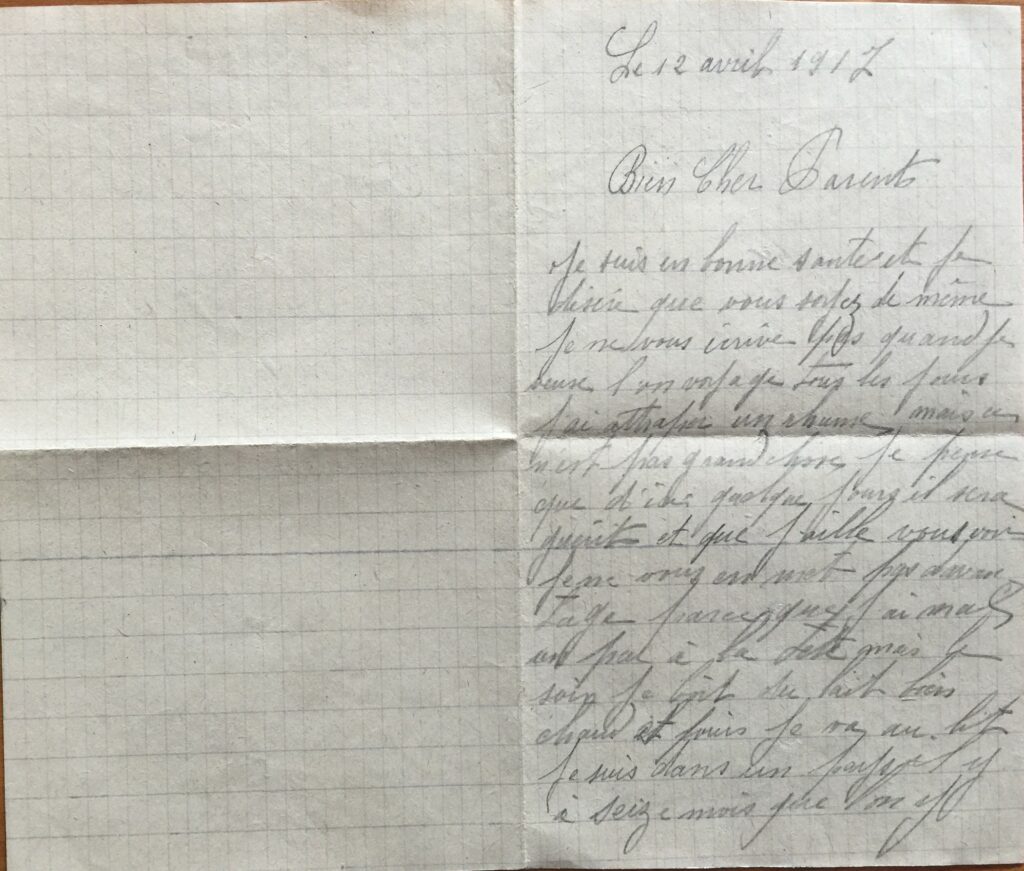 Le 12 avril 1917
Bien Cher Parents
Je suis en bonne sante et je
désire que vous soyez de même
Je ne vous écrive pas quand je
veux l'on voyage tous les jours
j'ai attraper un rhume mais ce
n'est pas grand chose je pense
que d'ici quelque jours il sera
guérit et que j'aille vous voir
je ne vous en met pas davan
tage parce que j'ai mal
un peu à la tete mais le
soir je boit du lait bien
chaud et puis je vaz au lit
Je suis dans un pays il y
à seize mois que l'on y